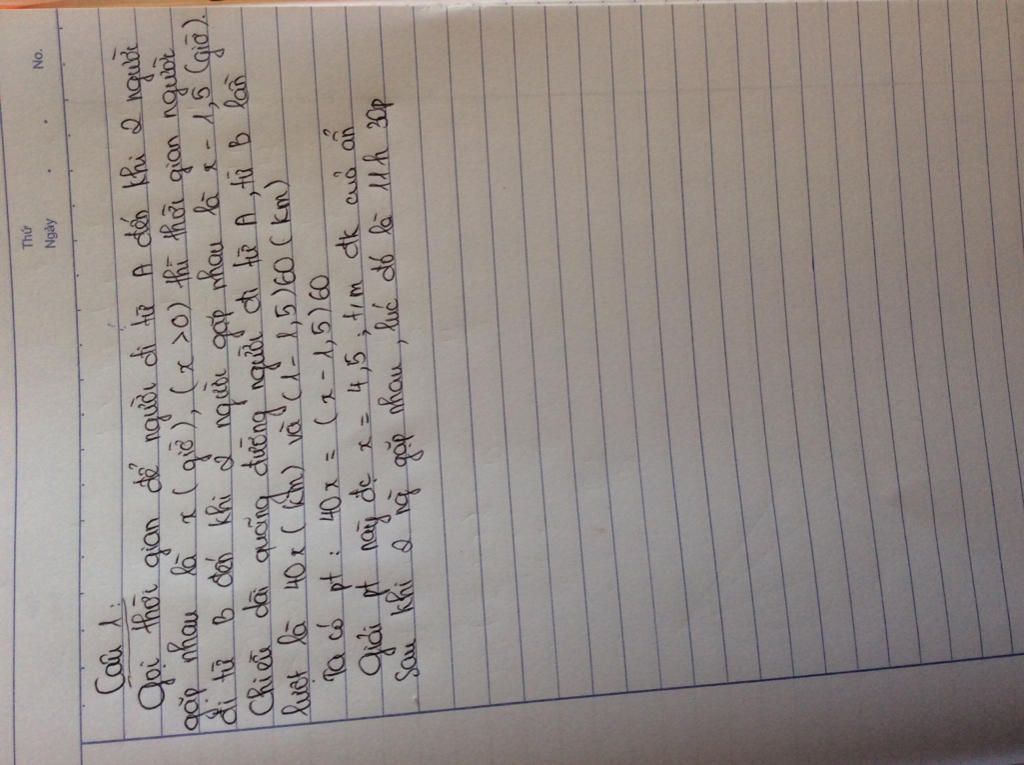 Thứ
Ngày
No.
Câu 1:
Gọi thời gian để người đi từ A đến khi 2 người
gặp nhau là x (giờ), (x >0) thì thời gian người
đi từ B đến khi 2 người gặp nhau là x - 1,5 (giờ).
Chiều dài quãng đường người đi từ A, từ B lần
lượt là 40x (km) và (1 - 1,5)60 (km)
Ta có pt: 40x = (x - 1,5)60
Giải pt này đc x = 4,5, t/m đk của ẩn
Sau khi 2 ng gặp nhau, lúc đó là 11h 30p